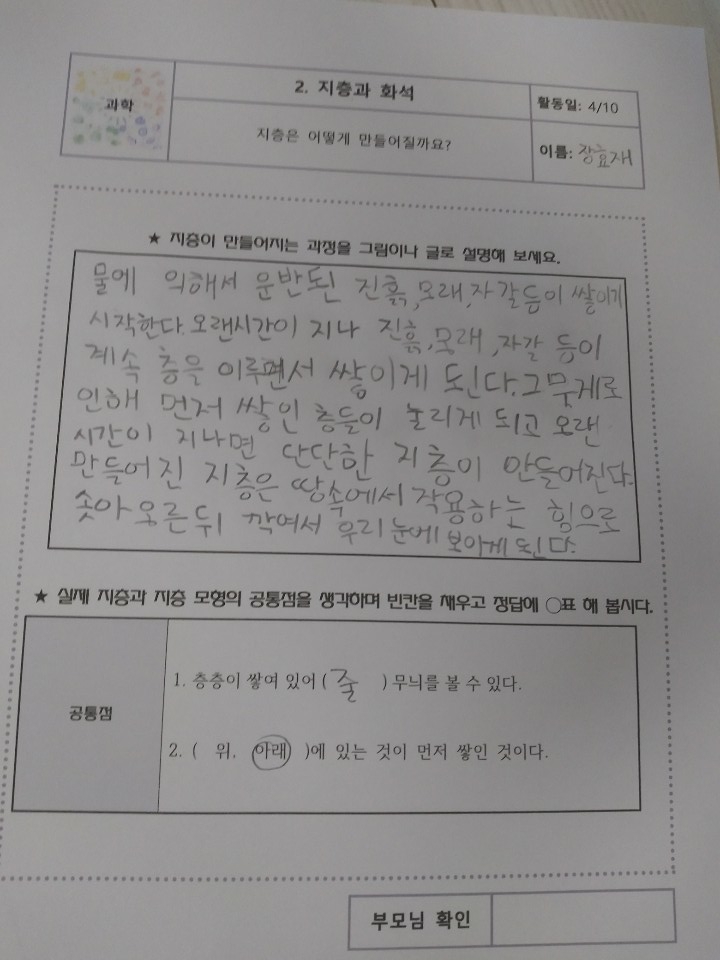 과학
2. 지층과 화석
활동일: 4/10
지층은 어떻게 만들어질까요?
이름: 장효재
★ 지층이 만들어지는 과정을 그림이나 글로 설명해 보세요.
물에 의해서 운반된 진흙,모래,자갈등이 쌓이기
시작한다.오랜시간이 지나 진흙,모래,자갈 등이
계속 층을 이루면서 쌓이게 된다.그 뭇게로
인해 먼저 쌓인 층들이 눌리게 되고 오랜
시간이 지나면 단단한 지층이 만들어진다.
만들어진 지층은 땅속에서 작용하는 힘으로
솟아오른뒤 깍여서 우리눈에 보이게 된다.
★ 실제 지층과 지층 모형의 공통점을 생각하며 빈칸을 채우고 정답에 ○표 해 봅시다.
공통점
1. 층층이 쌓여 있어 ( 줄 ) 무늬를 볼 수 있다.
2. ( 위, 아래 )에 있는 것이 먼저 쌓인 것이다.
부모님 확인